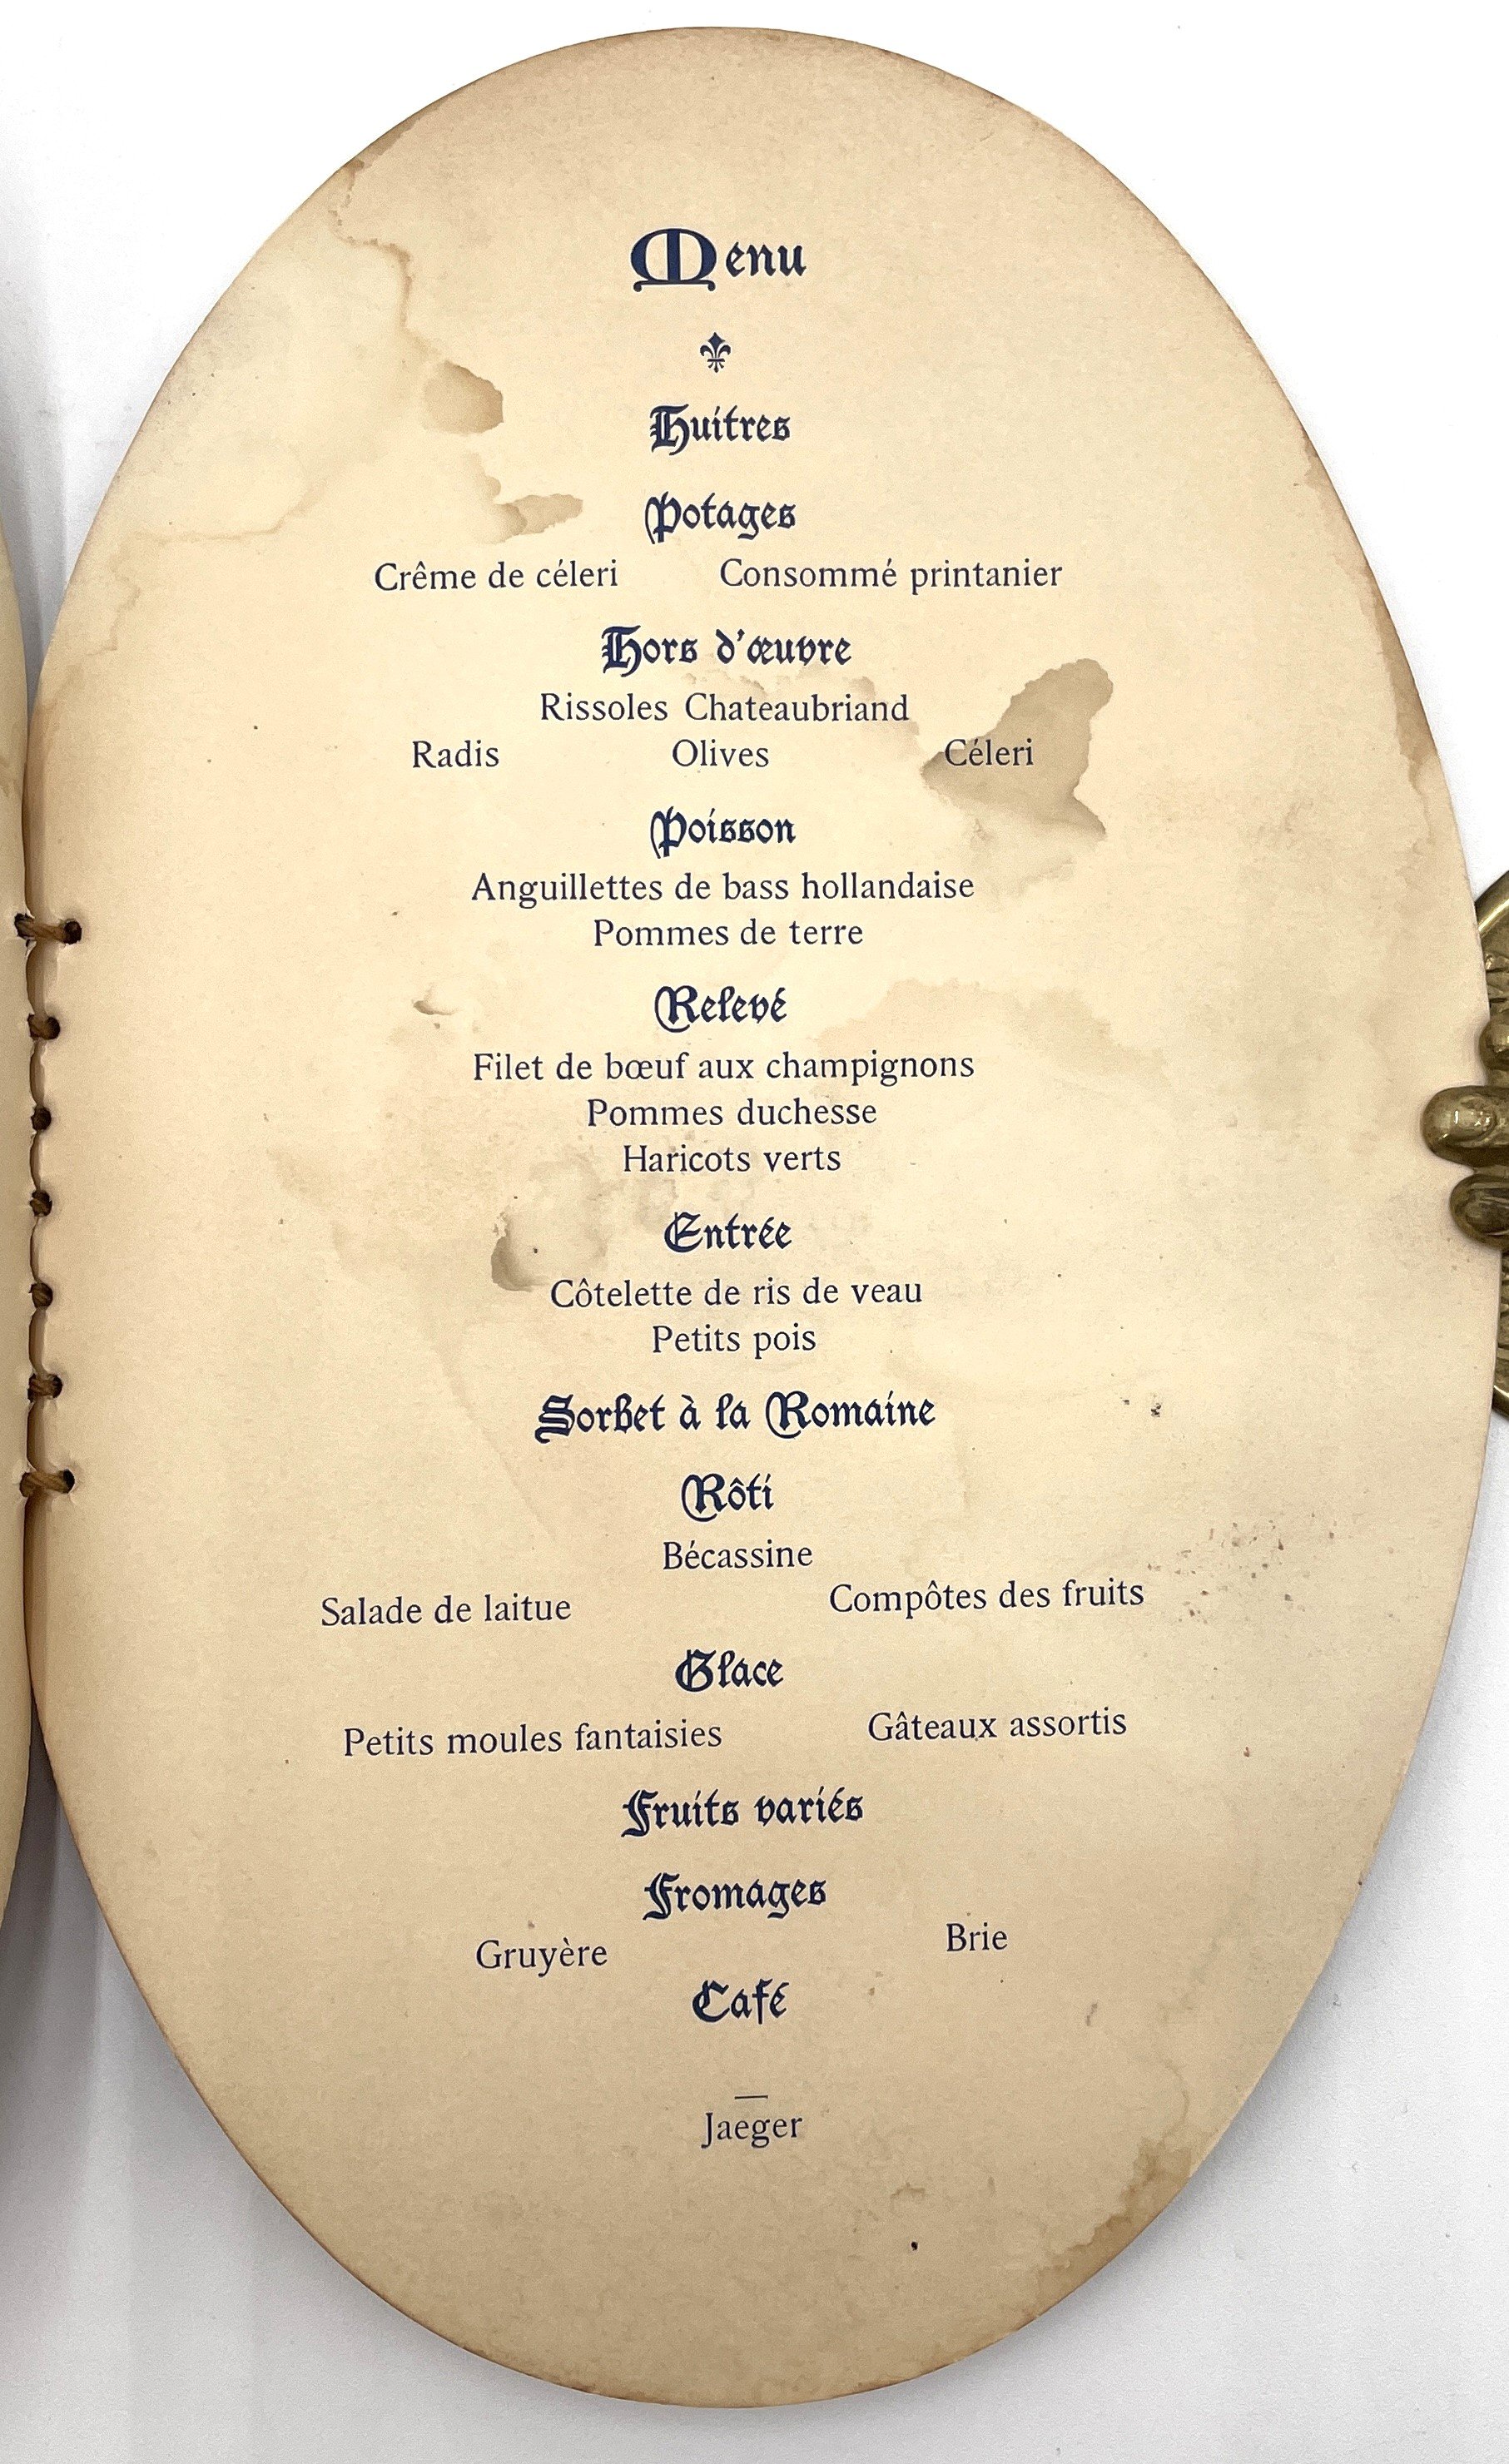 Menu
Huitres
Potages
Crême de céleri Consommé printanier
Hors d'œuvre
Rissoles Chateaubriand
Radis Olives Céleri
Poisson
Anguillettes de bass hollandaise
Pommes de terre
Relevé
Filet de bœuf aux champignons
Pommes duchesse
Haricots verts
Entrée
Côtelette de ris de veau
Petits pois
Sorbet à la Romaine
Rôti
Bécassine
Salade de laitue Compôtes des fruits
Glace
Petits moules fantaisies Gâteaux assortis
Fruits variés
Fromages
Gruyère Brie
Café
Jaeger